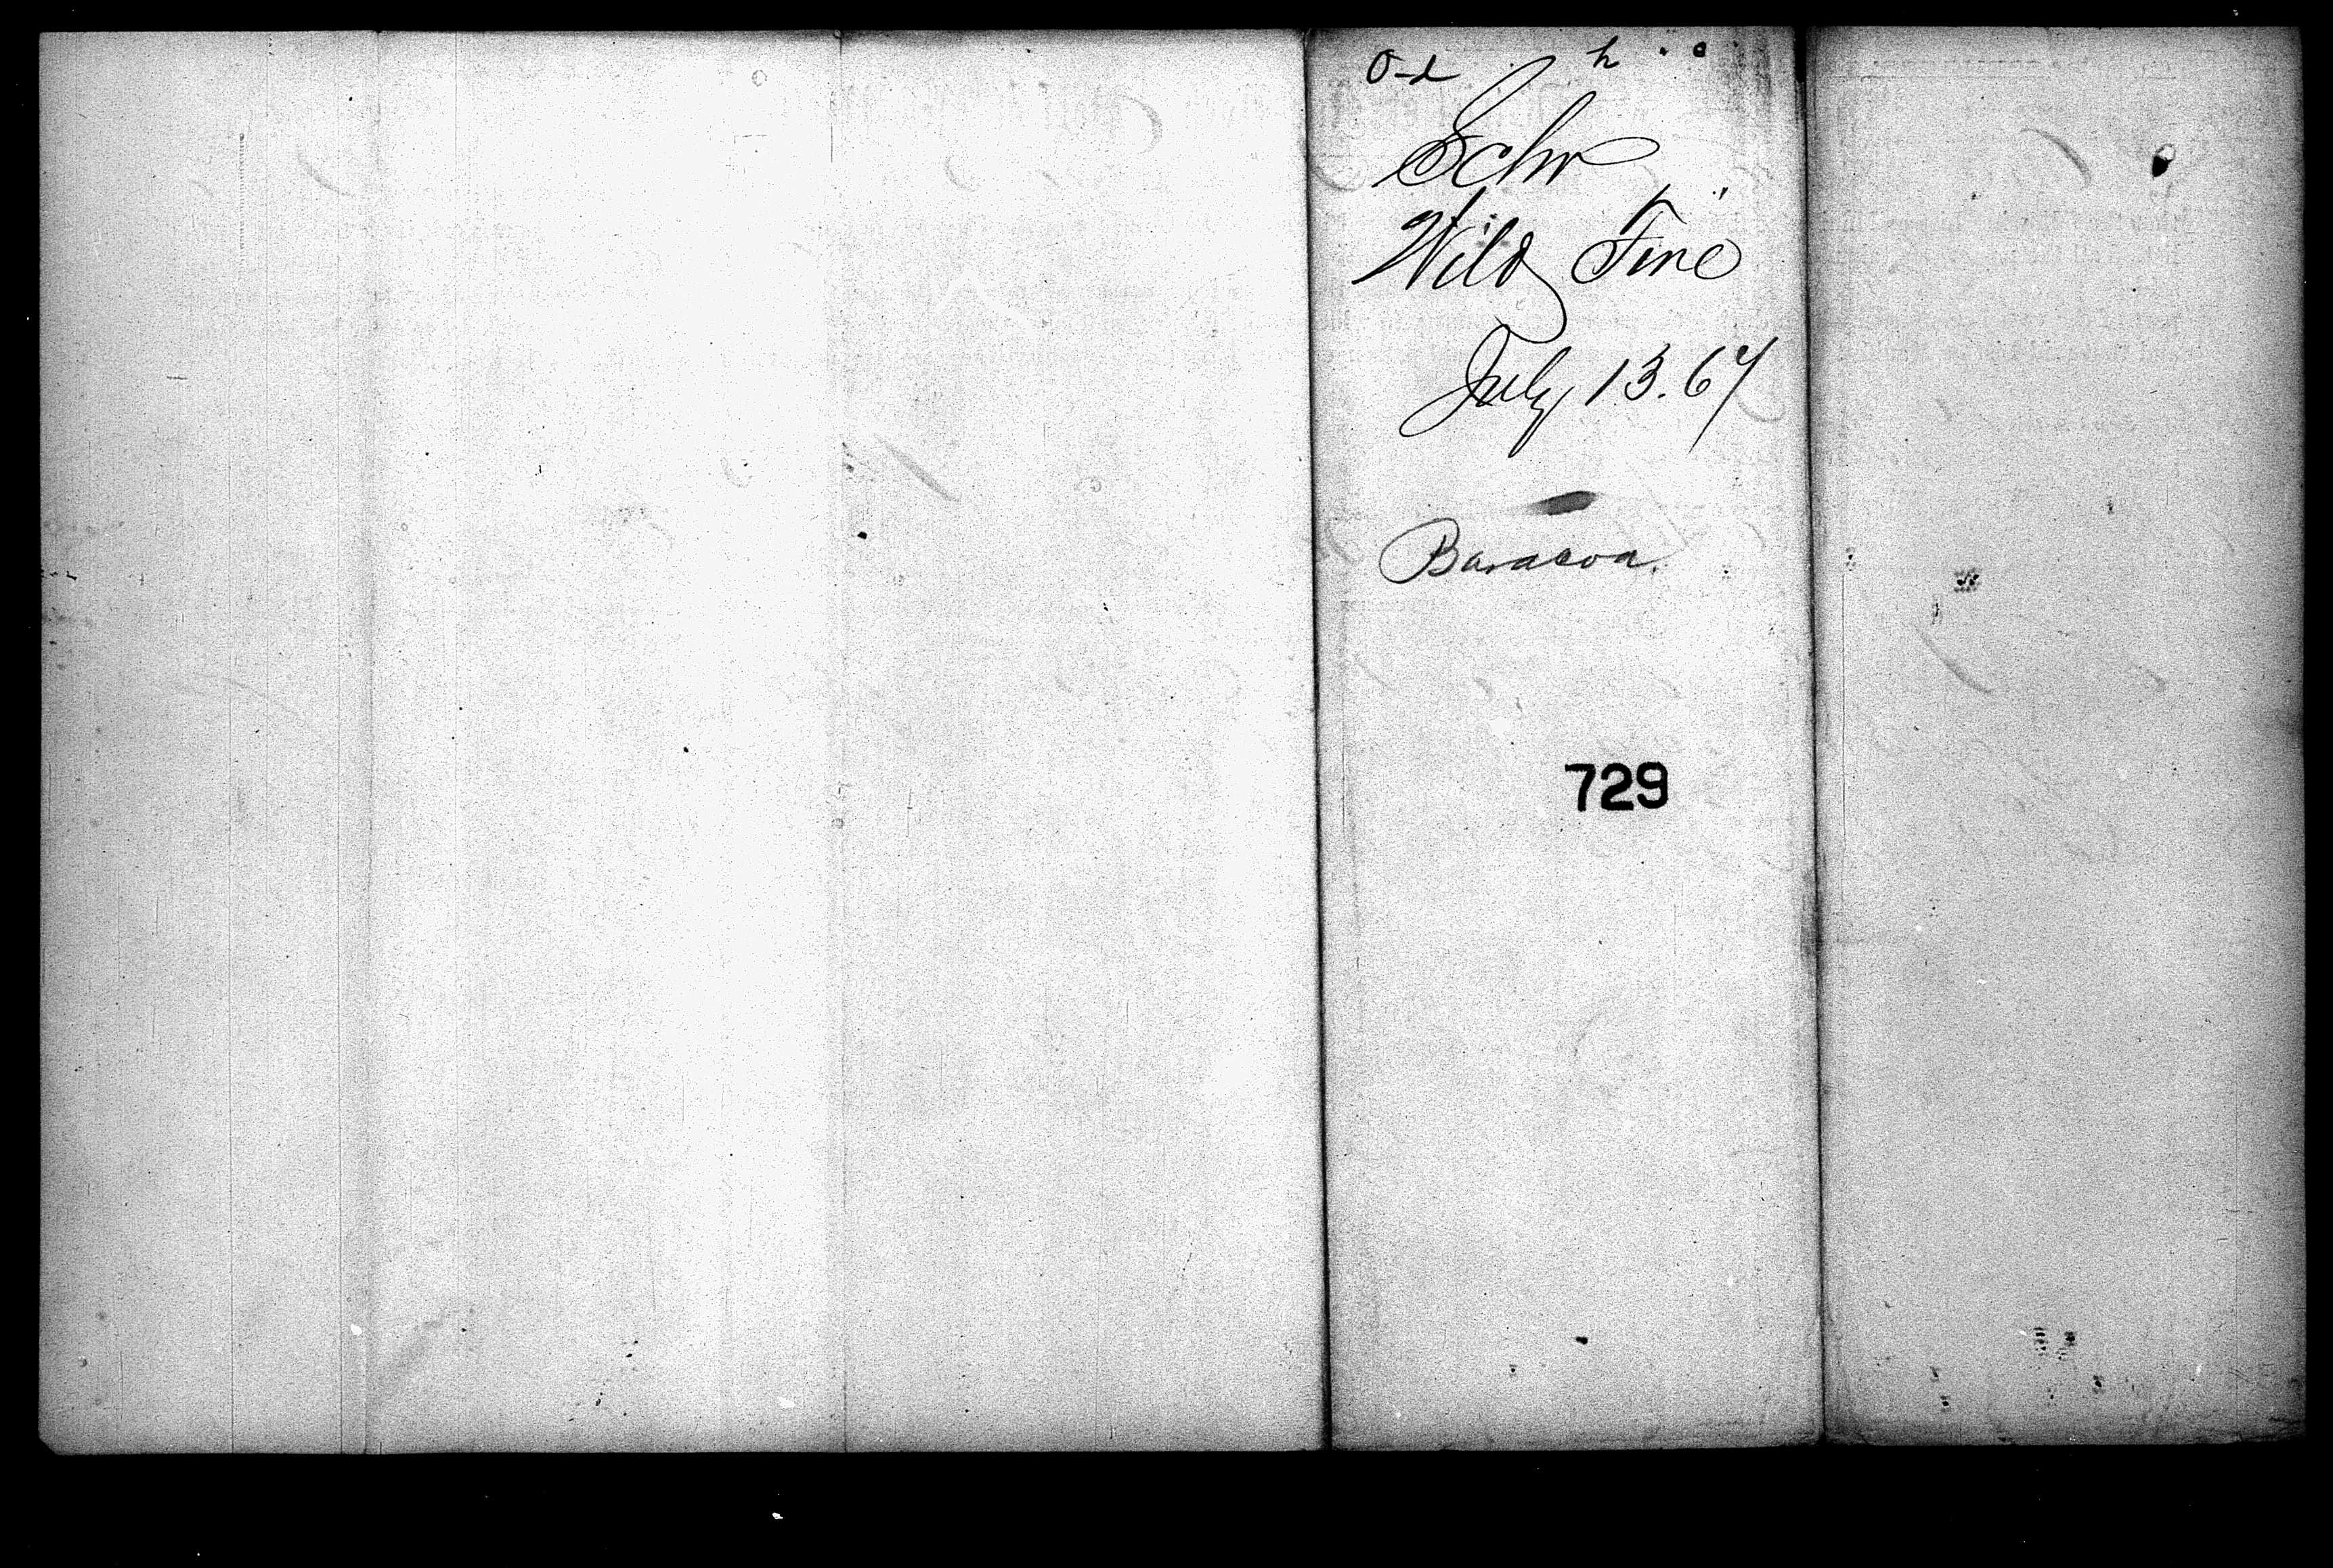 Schr
Wild Fire
July 13. 67
Baracoa.
729